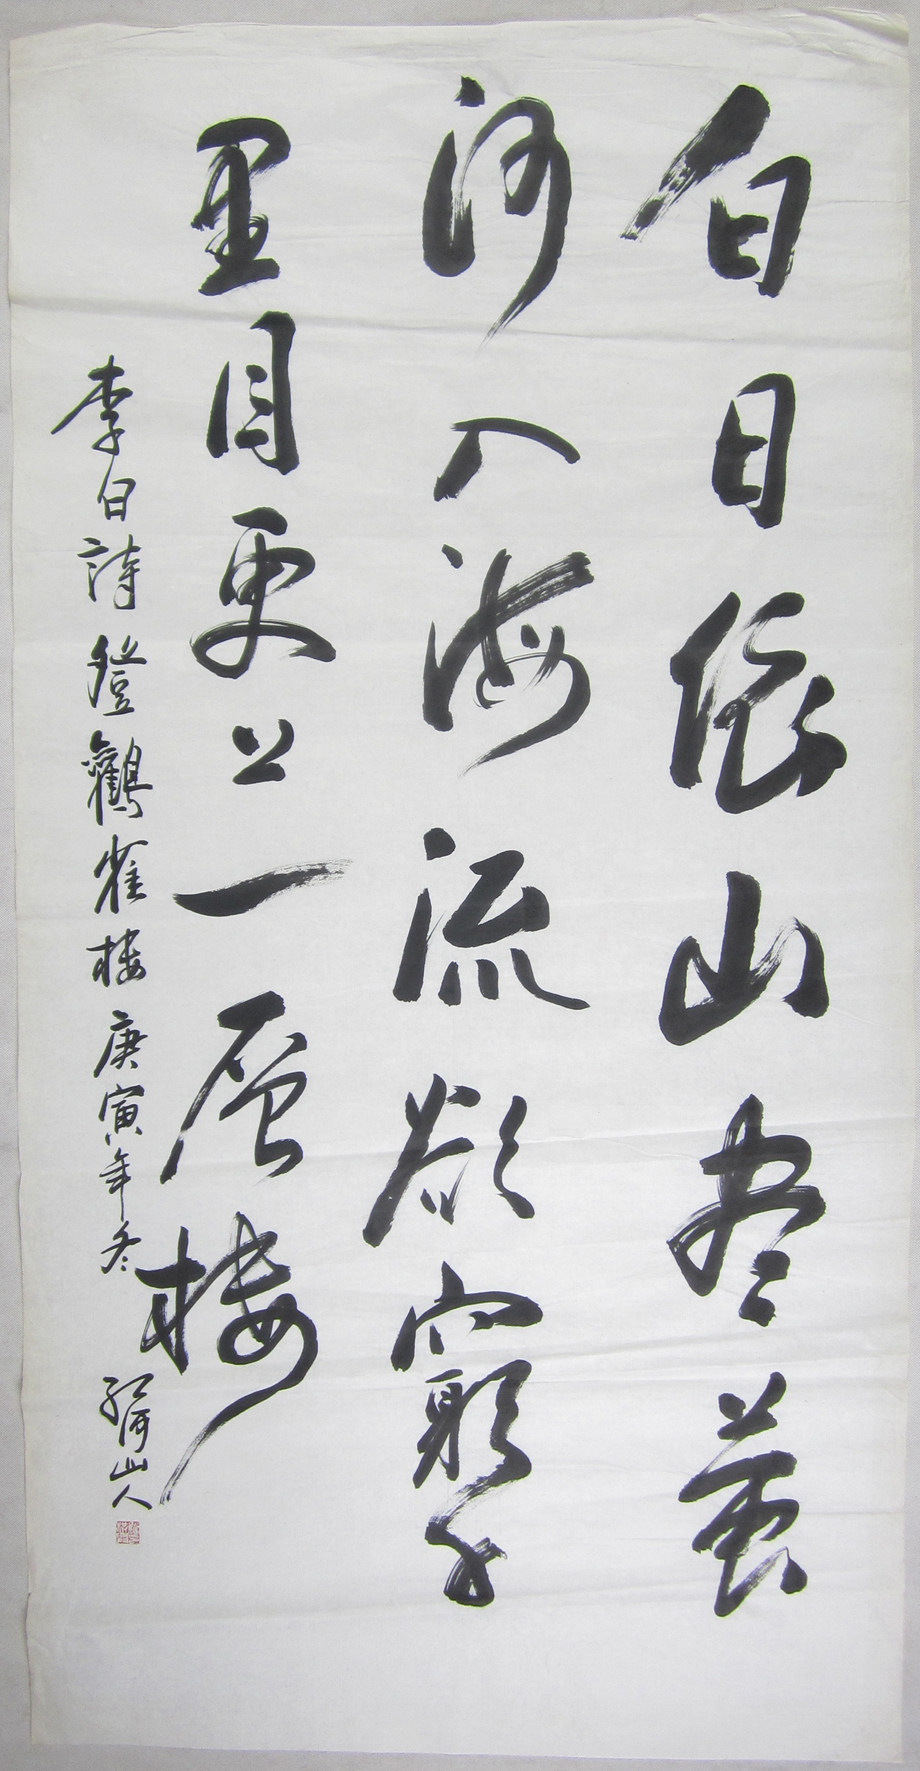 白日依山尽黄
河入海流欲窮千
里目更上一层楼
李白詩登鸛雀楼庚寅年冬
红河山人